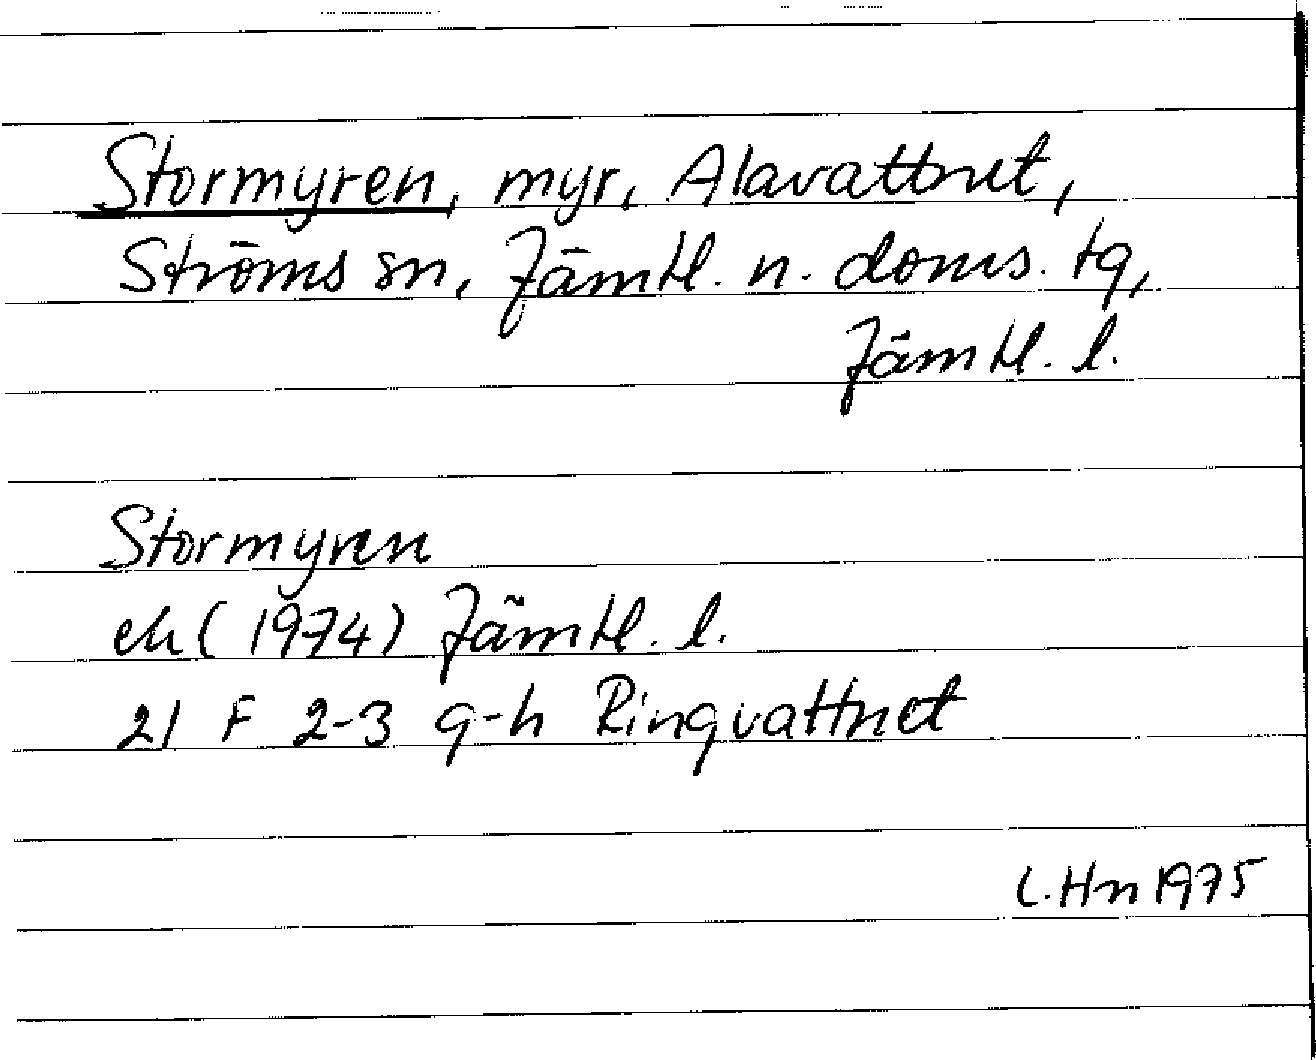 Stormyren, myr, Alavattnet,
Ströms sn, Jämtl. n. doms. tg,
Jämtl. l.
Stormyren
ek (1974) Jämtl. l.
21 F 2-3 g-h Ringvattnet
C. Hn 1975